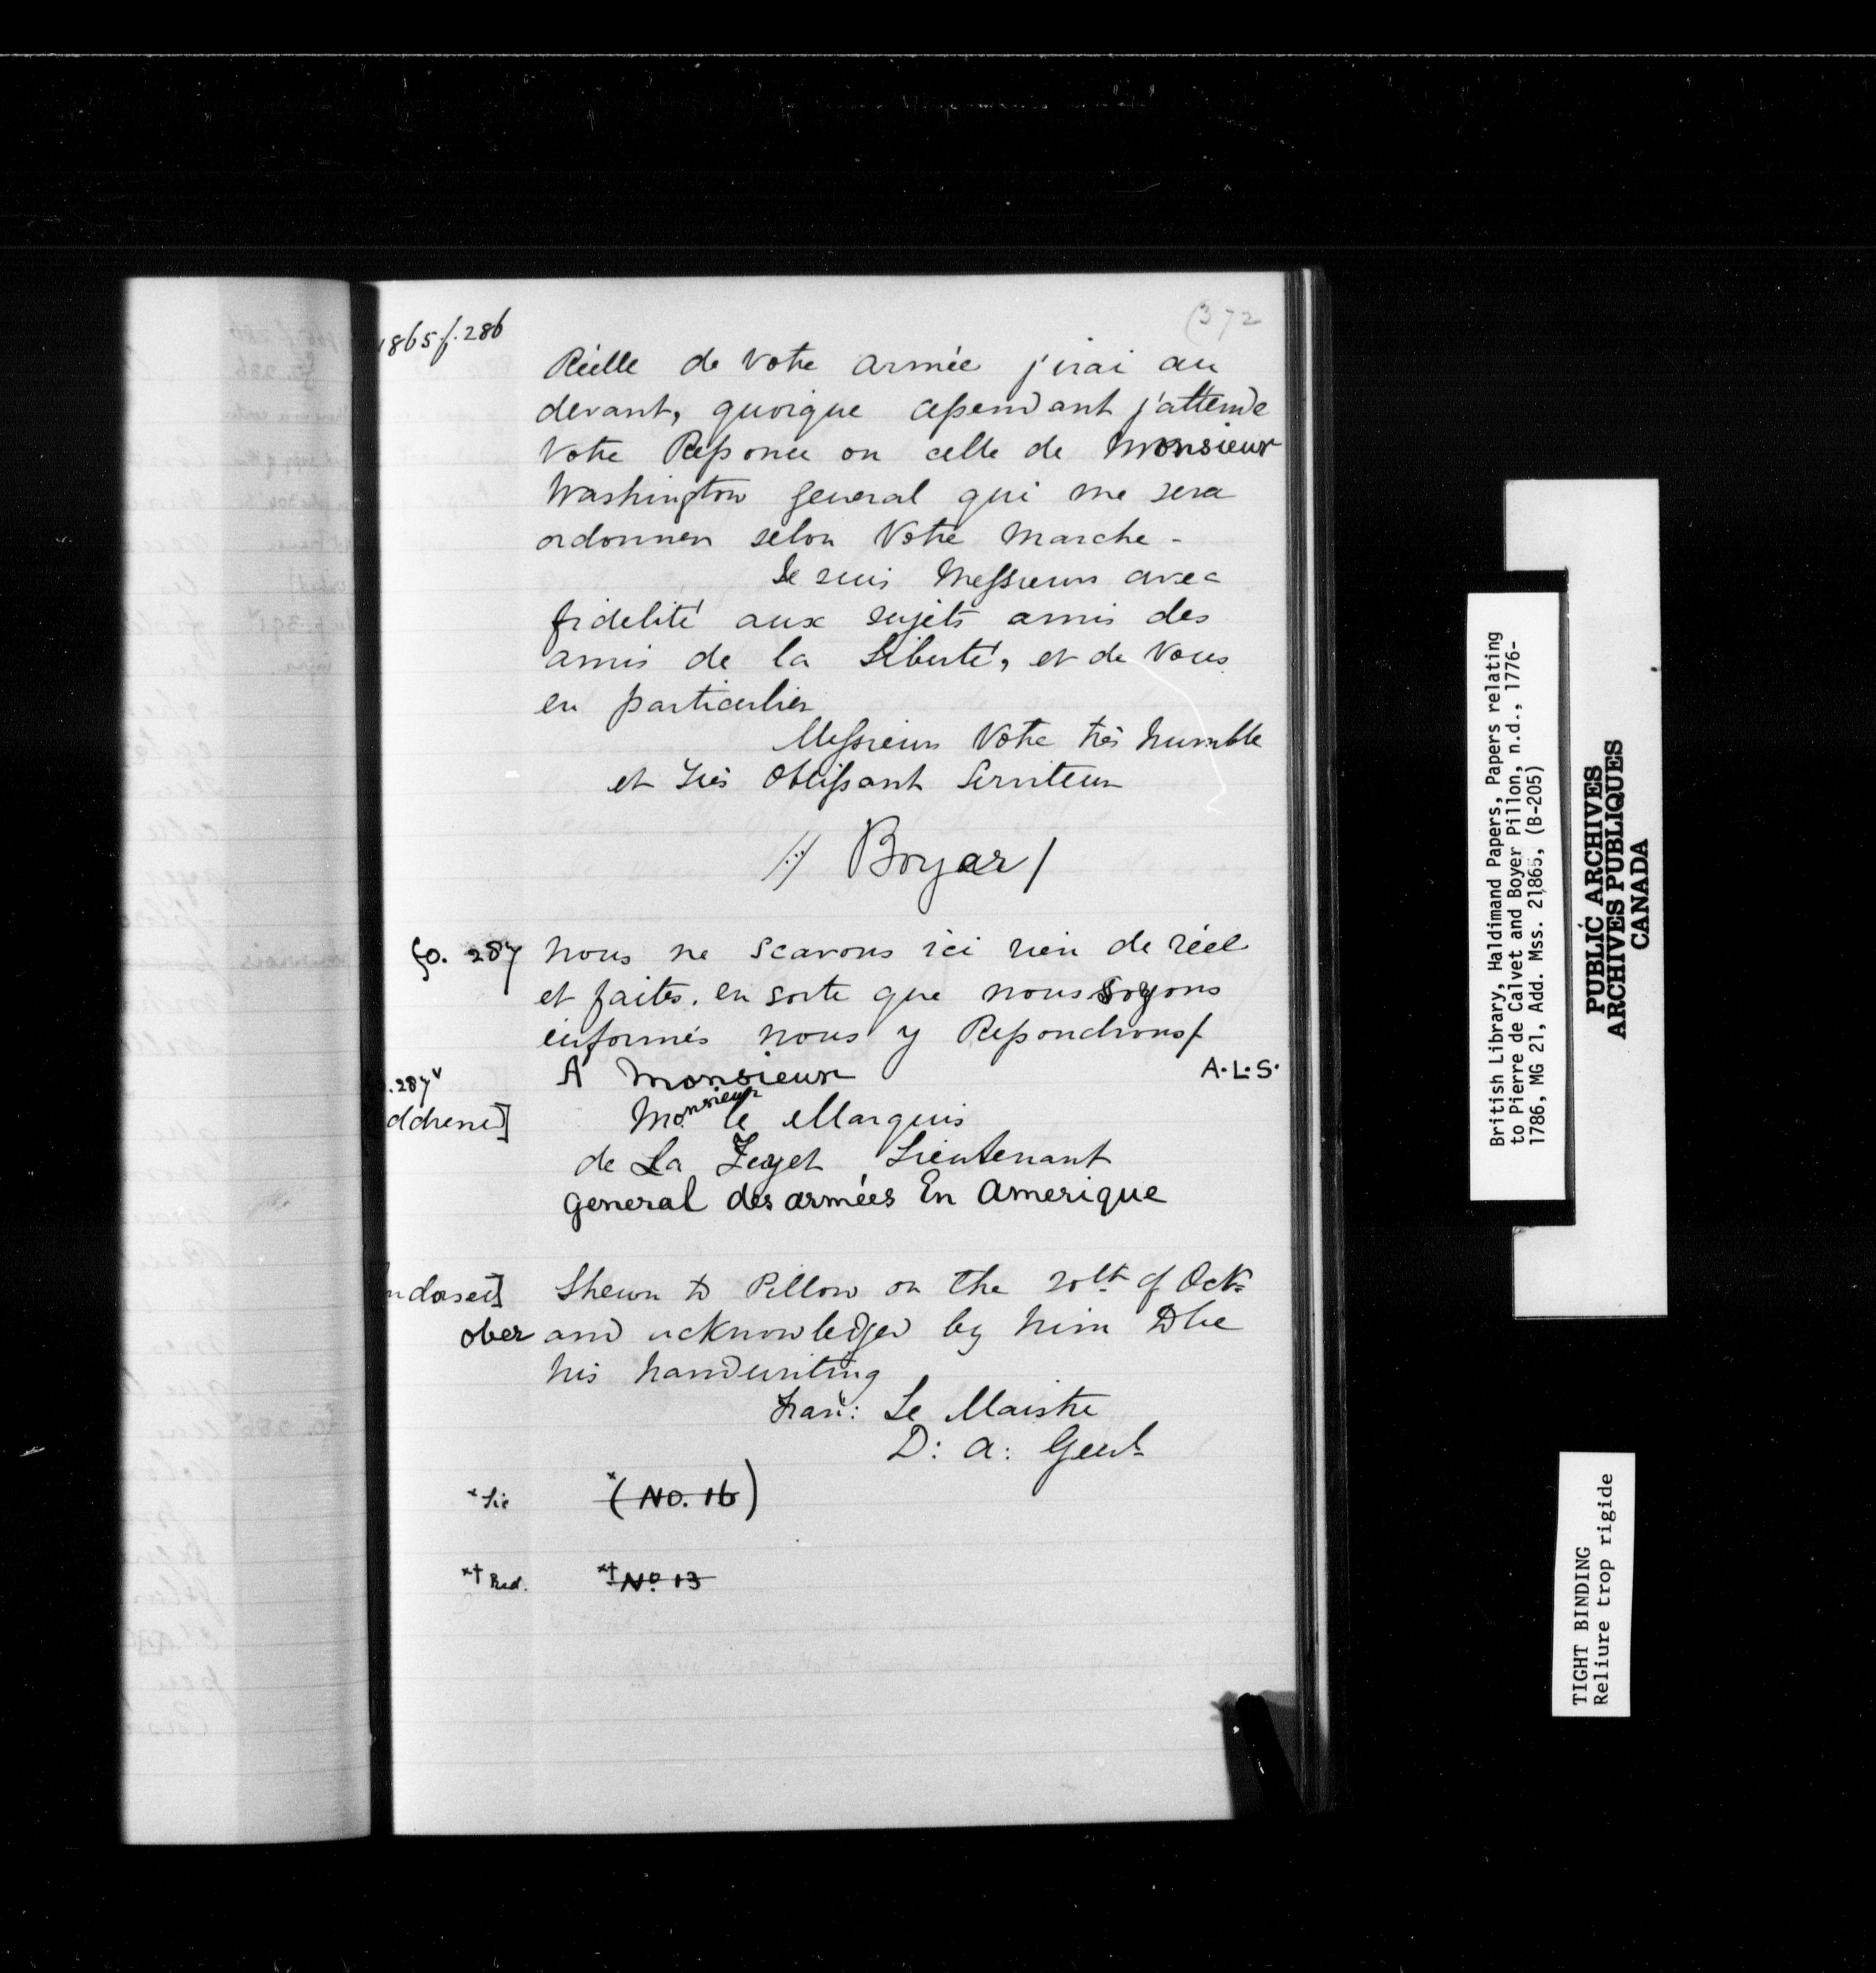 (372
1865 f. 286
Réelle de Votre armée j'irai au
devant, quoique cependant j'attende
Votre Reponce ou celle de Monsieur
Washington general qui me sera
ordonner selon Votre Marche -
Je suis Messieurs avec
fidelité aux sujets amis des
amis de la Liberté, et de Vous
en particulier
Messieurs Votre très humble
et très Obeissant Serviteur
Boyer/
fo. 287 Nous ne scavons ici rien de réel
et faites. en sorte que nous soyons
informés nous y Repondrons/
A Monsieur A.L.S.
.287v
ddresse] Monsieur le Marquis
de La Feyet Lieutenant
general des armées En Amerique
ndorsed] Shewn to Pillon on the 20th of Oct-
ober and acknowledged by him to be
his handwriting
Fran: Le Maistre
D: A: Genl
*Sic *(No. 16)
*† Red. *† No 13
British Library, Haldimand Papers, Papers relating
to Pierre de Calvet and Boyer Pillon, n.d., 1776-
1786, MG 21, Add. Mss. 21865, (B-205)
PUBLIC ARCHIVES
ARCHIVES PUBLIQUES
CANADA
TIGHT BINDING
Reliure trop rigide